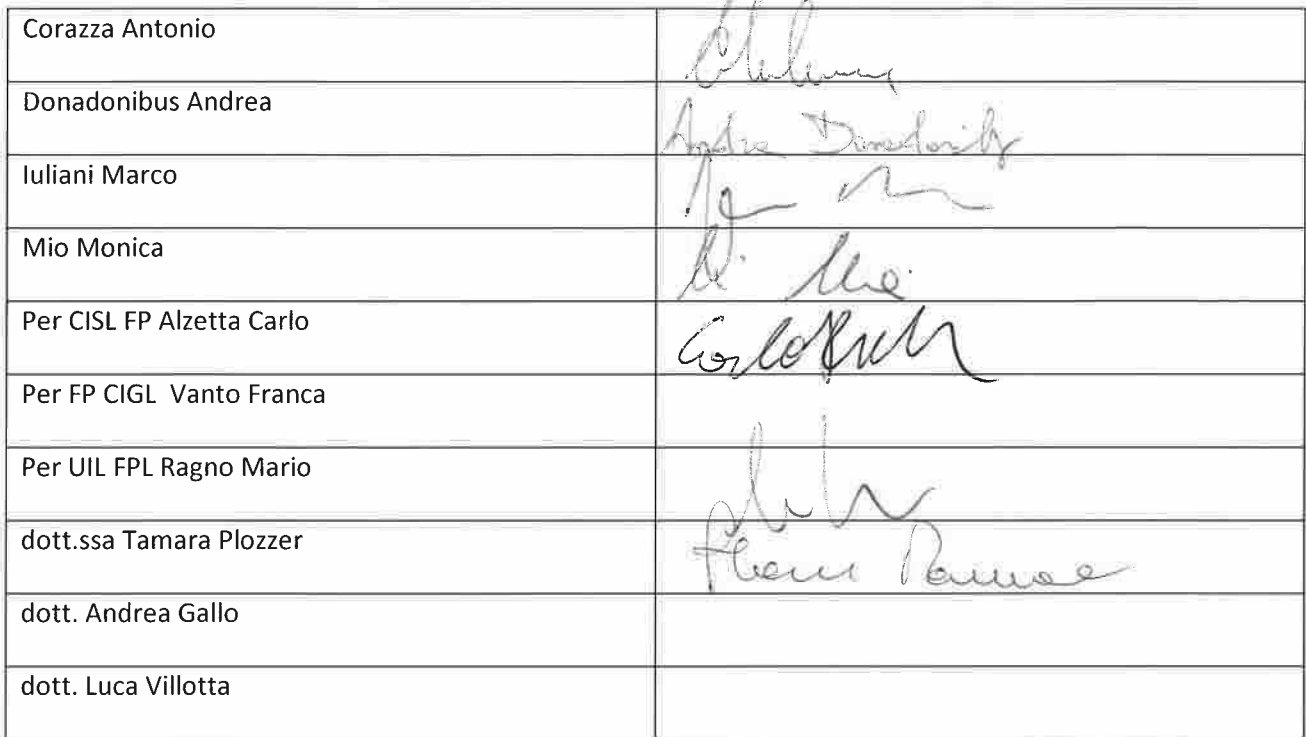 Corazza Antonio
Donadonibus Andrea
Andrea Donadonibus
Iuliani Marco
Mio Monica
Per CISL FP Alzetta Carlo
Carlo
Per FP CIGL Vanto Franca
Per UIL FPL Ragno Mario
dott.ssa Tamara Plozzer
dott. Andrea Gallo
dott. Luca Villotta